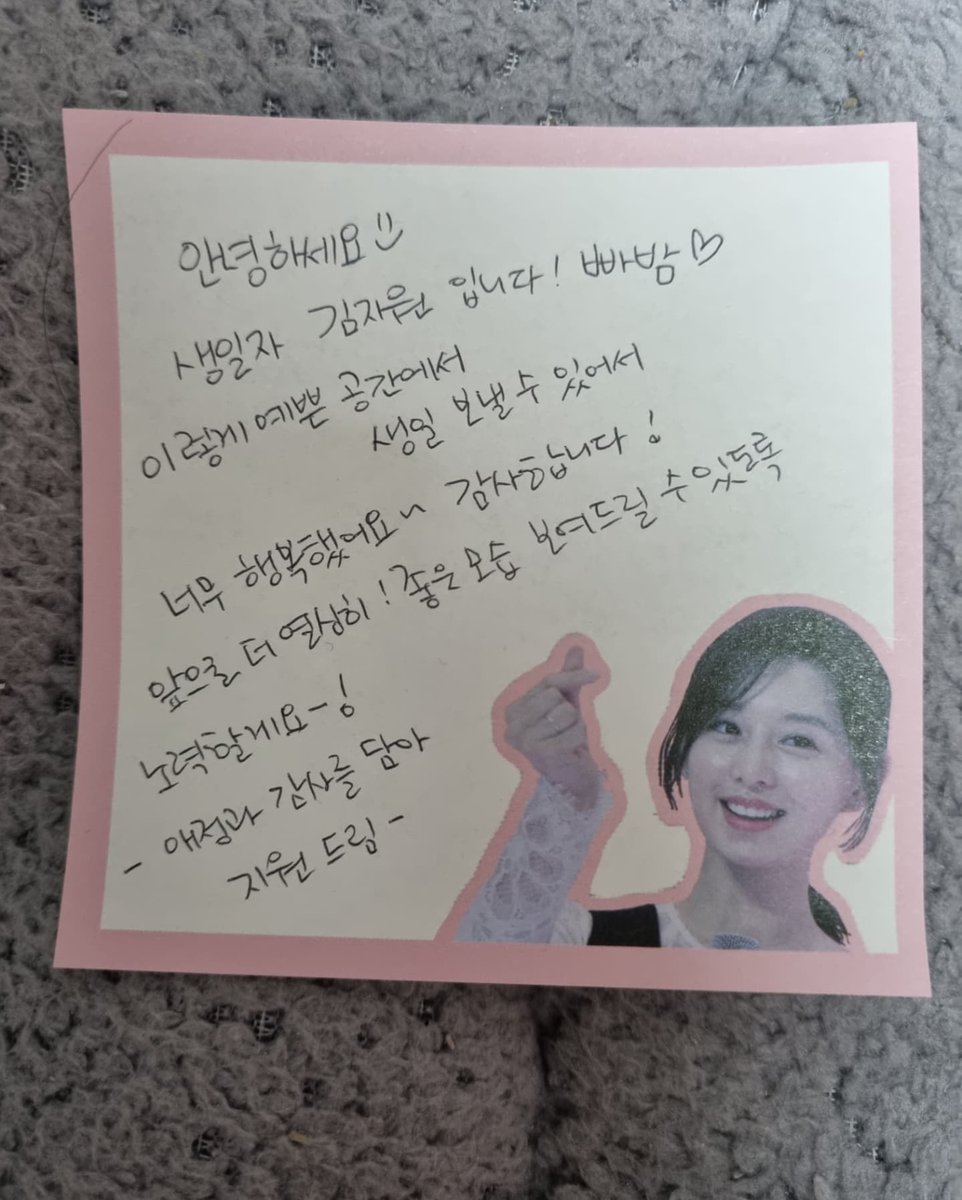 안녕하세요 :)
생일자 김지원 입니다! 빠밤♡
이렇게 예쁜 공간에서
생일 보낼 수 있어서
너무 행복했어요~ 감사합니다!
앞으로 더 열심히! 좋은 모습 보여드릴 수 있도록
노력할게요~!
- 애정과 감사를 담아
지원 드림 -